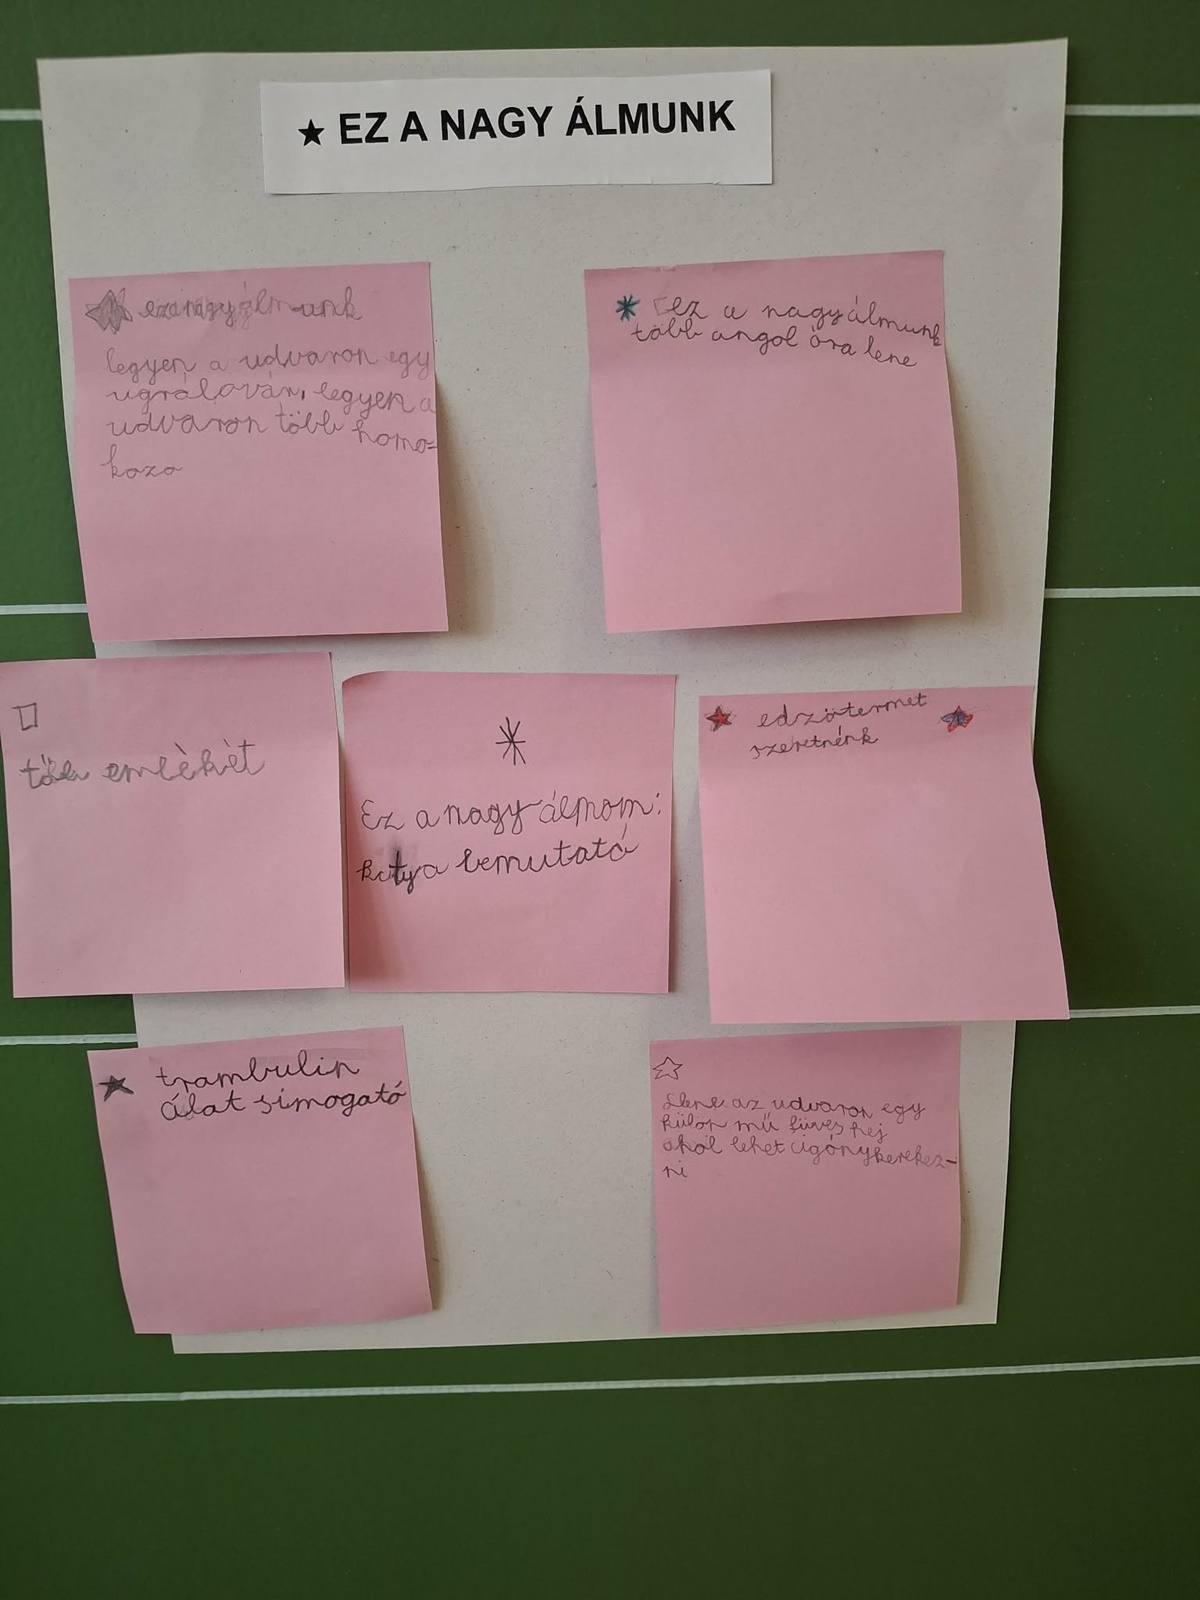 ★ EZ A NAGY ÁLMUNK
ez a nagy álmunk
legyen a udvaron egy
ugrálóvár, legyen a
udvaron több homo-
kozo
ez a nagy álmunk
több angol óra lene
töb emlèkèt
Ez a nagy álmom:
kutya bemutató
edzötermet
szeretnénk
trambulin
álat simogató
Lene az udvaron egy
külön mű füves hej
ahol lehet cigónykerekez-
ni